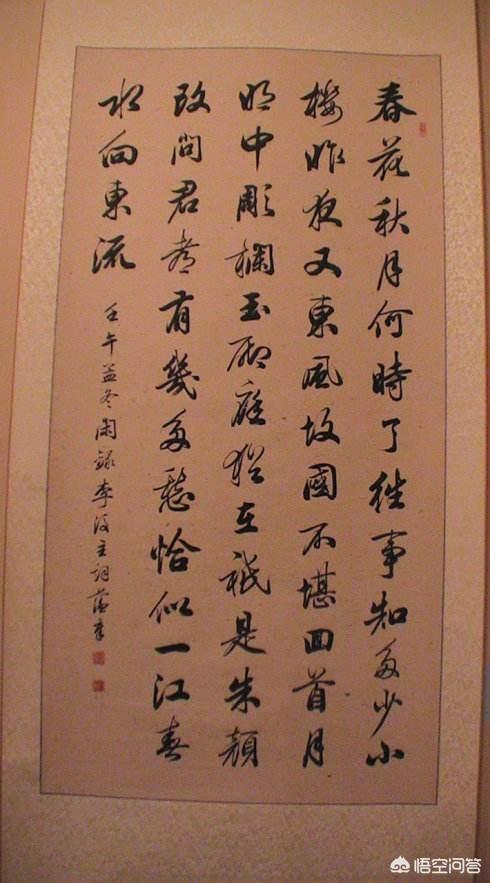 春花秋月何時了往事知多少小
樓昨夜又東風故國不堪回首月
明中彫欄玉砌應猶在祇是朱顏
改問君有幾多愁恰似一江春
水向東流
壬午孟冬閑錄李後主詞
悟空问答